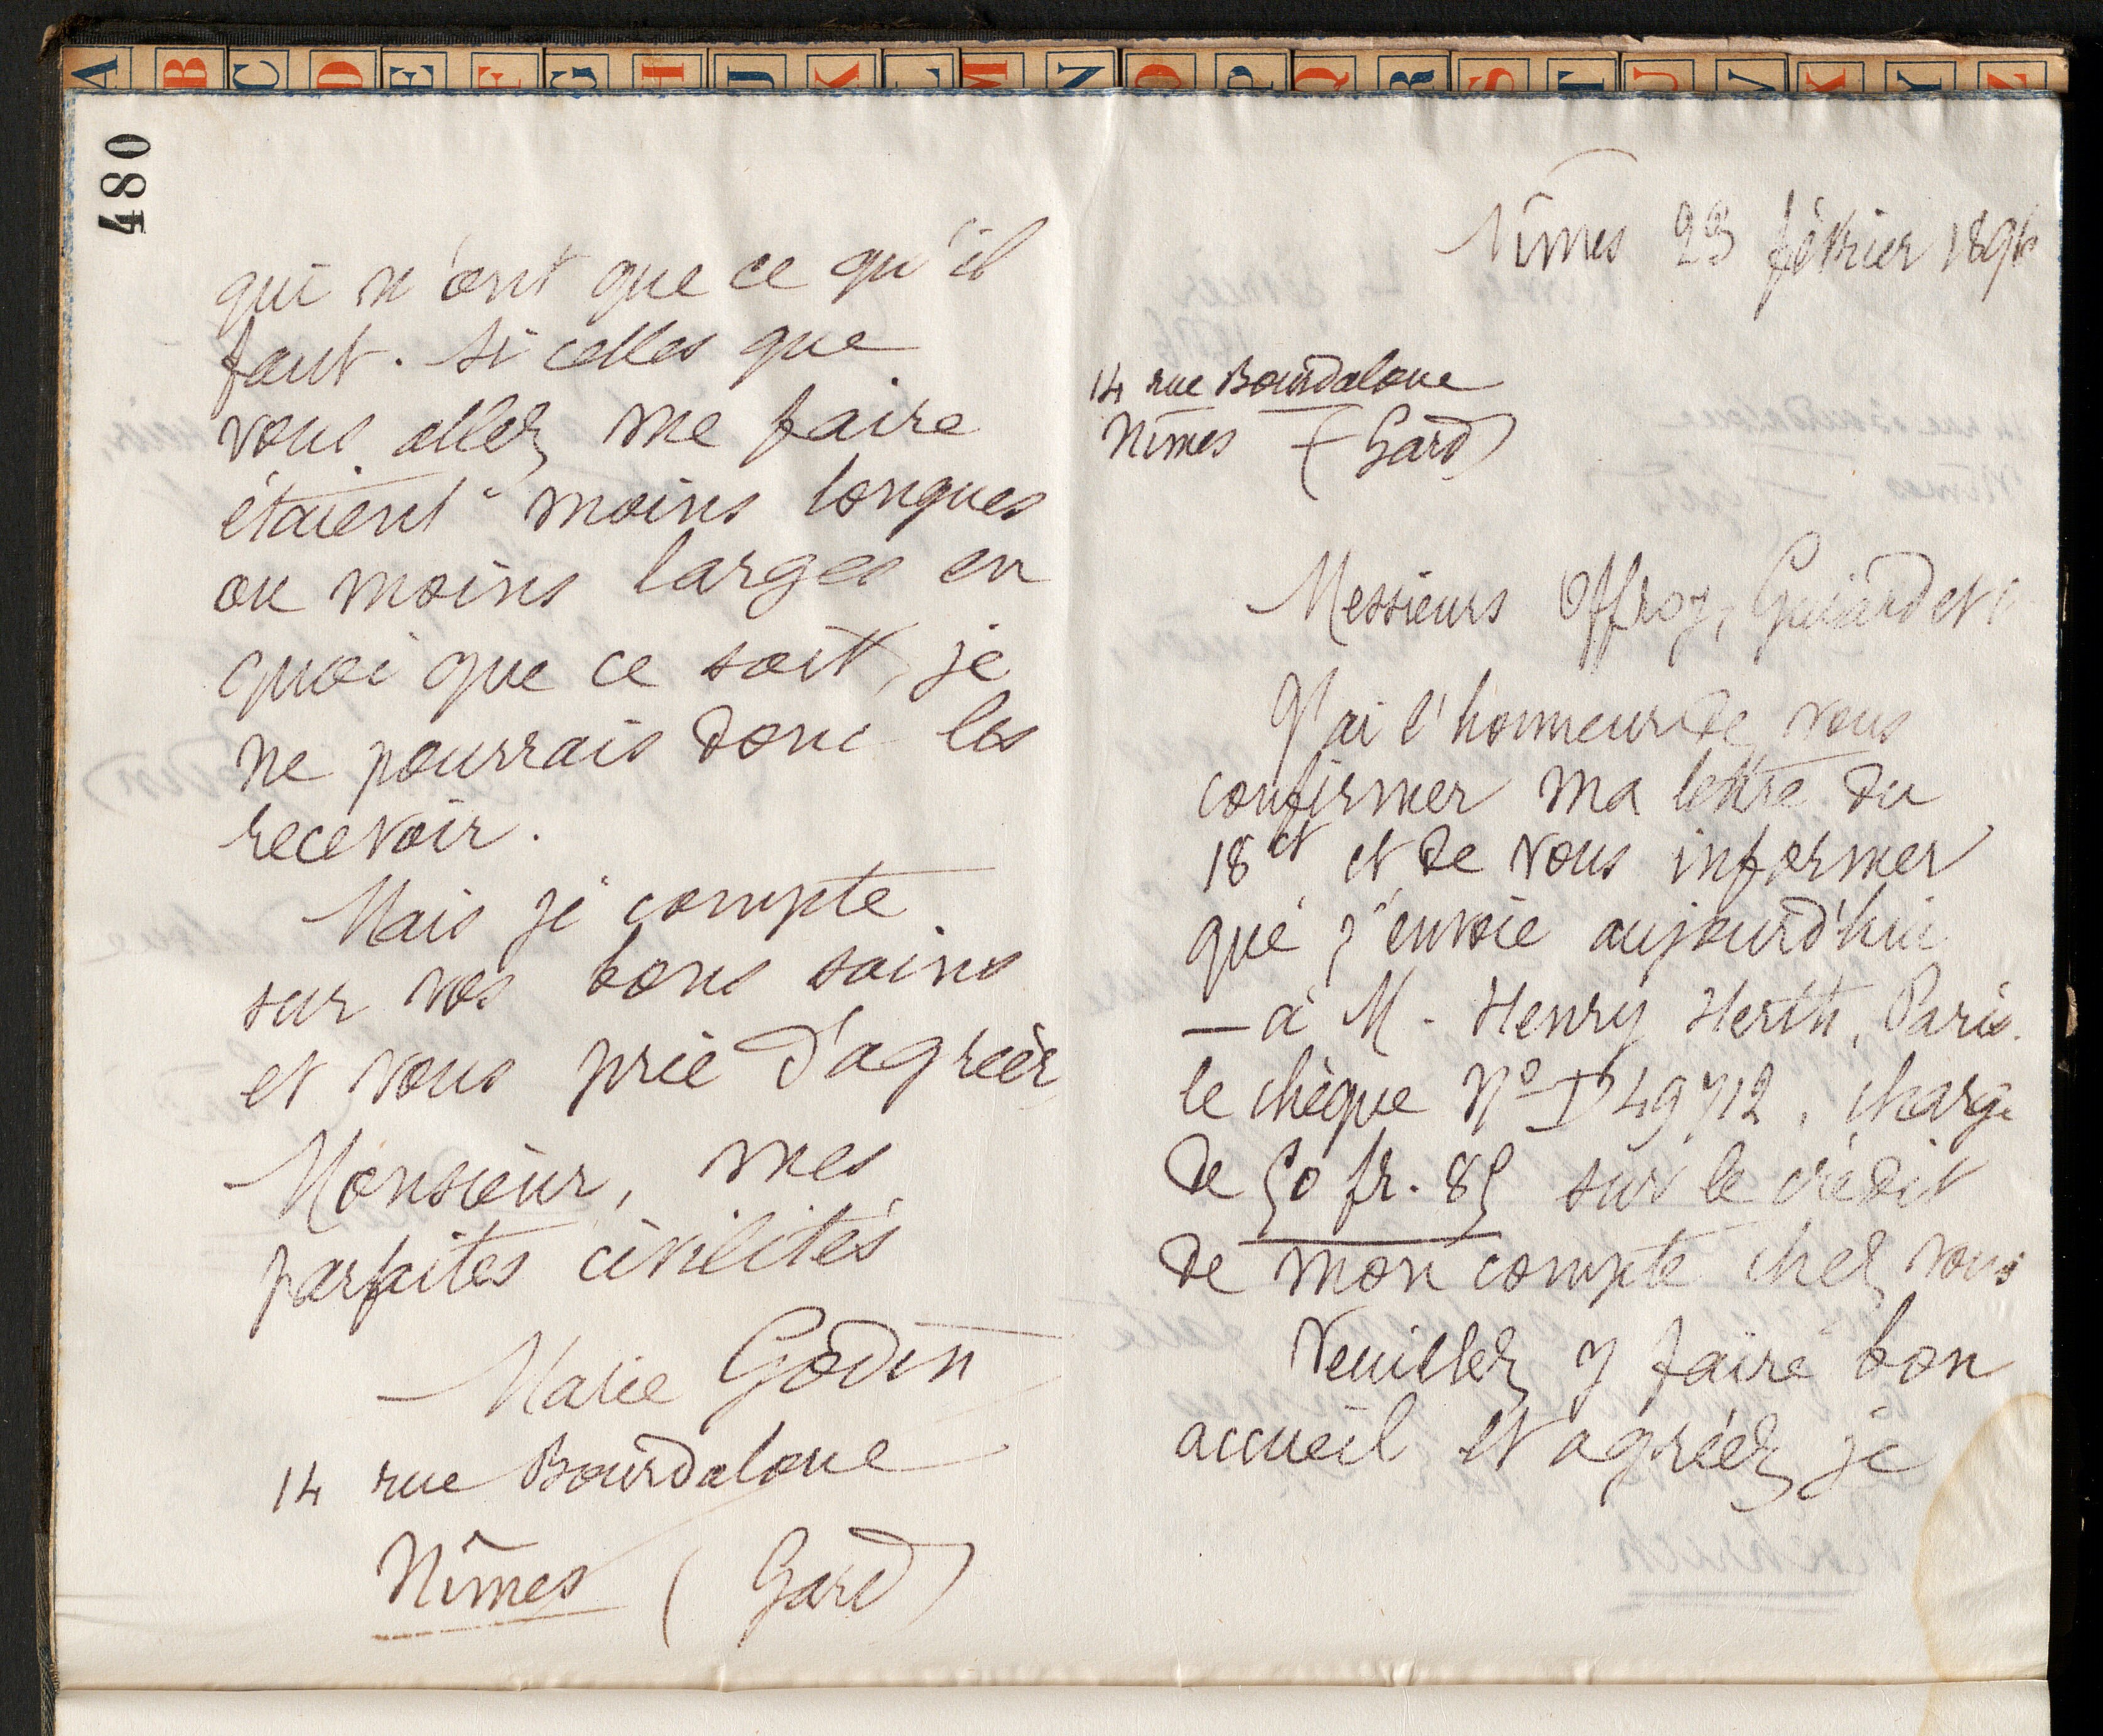 A B C D E F G H I J K L M N O P Q R S T U V X Y Z
480
qui n'ont que ce qu'il
faut. Si celles que
vous allez me faire
étaient moins longues
ou moins larges en
quoi que ce soit, je
ne pourrais donc les
recevoir.
Mais je compte
sur vos bons soins
et vous prie d'agréer,
Monsieur, mes
parfaites civilités
Marie Godin
14 rue Bourdaloue
Nîmes (Gard)
Nîmes 23 février 1896
14 rue Bourdaloue
Nîmes (Gard)
Messieurs Offroy, Guiard et
J'ai l'honneur de vous
confirmer ma lettre du
18 ct et de vous informer
que j'envoie aujourd'hui
— à M. Henry Herth, Paris.
le chèque No D 49712, chargé
de 50 fr. 85 sur le crédit
de mon compte chez vous
Veuillez y faire bon
accueil et agréez, je